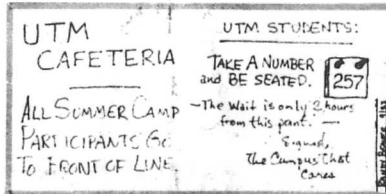 UTM
CAFETERIA
ALL SUMMER CAMP
PARTICIPANTS GO
TO FRONT OF LINE.
UTM STUDENTS:
TAKE A NUMBER
and BE SEATED.
257
—The Wait is only 2 hours
from this point. —
Signed,
The Campus That
Cares